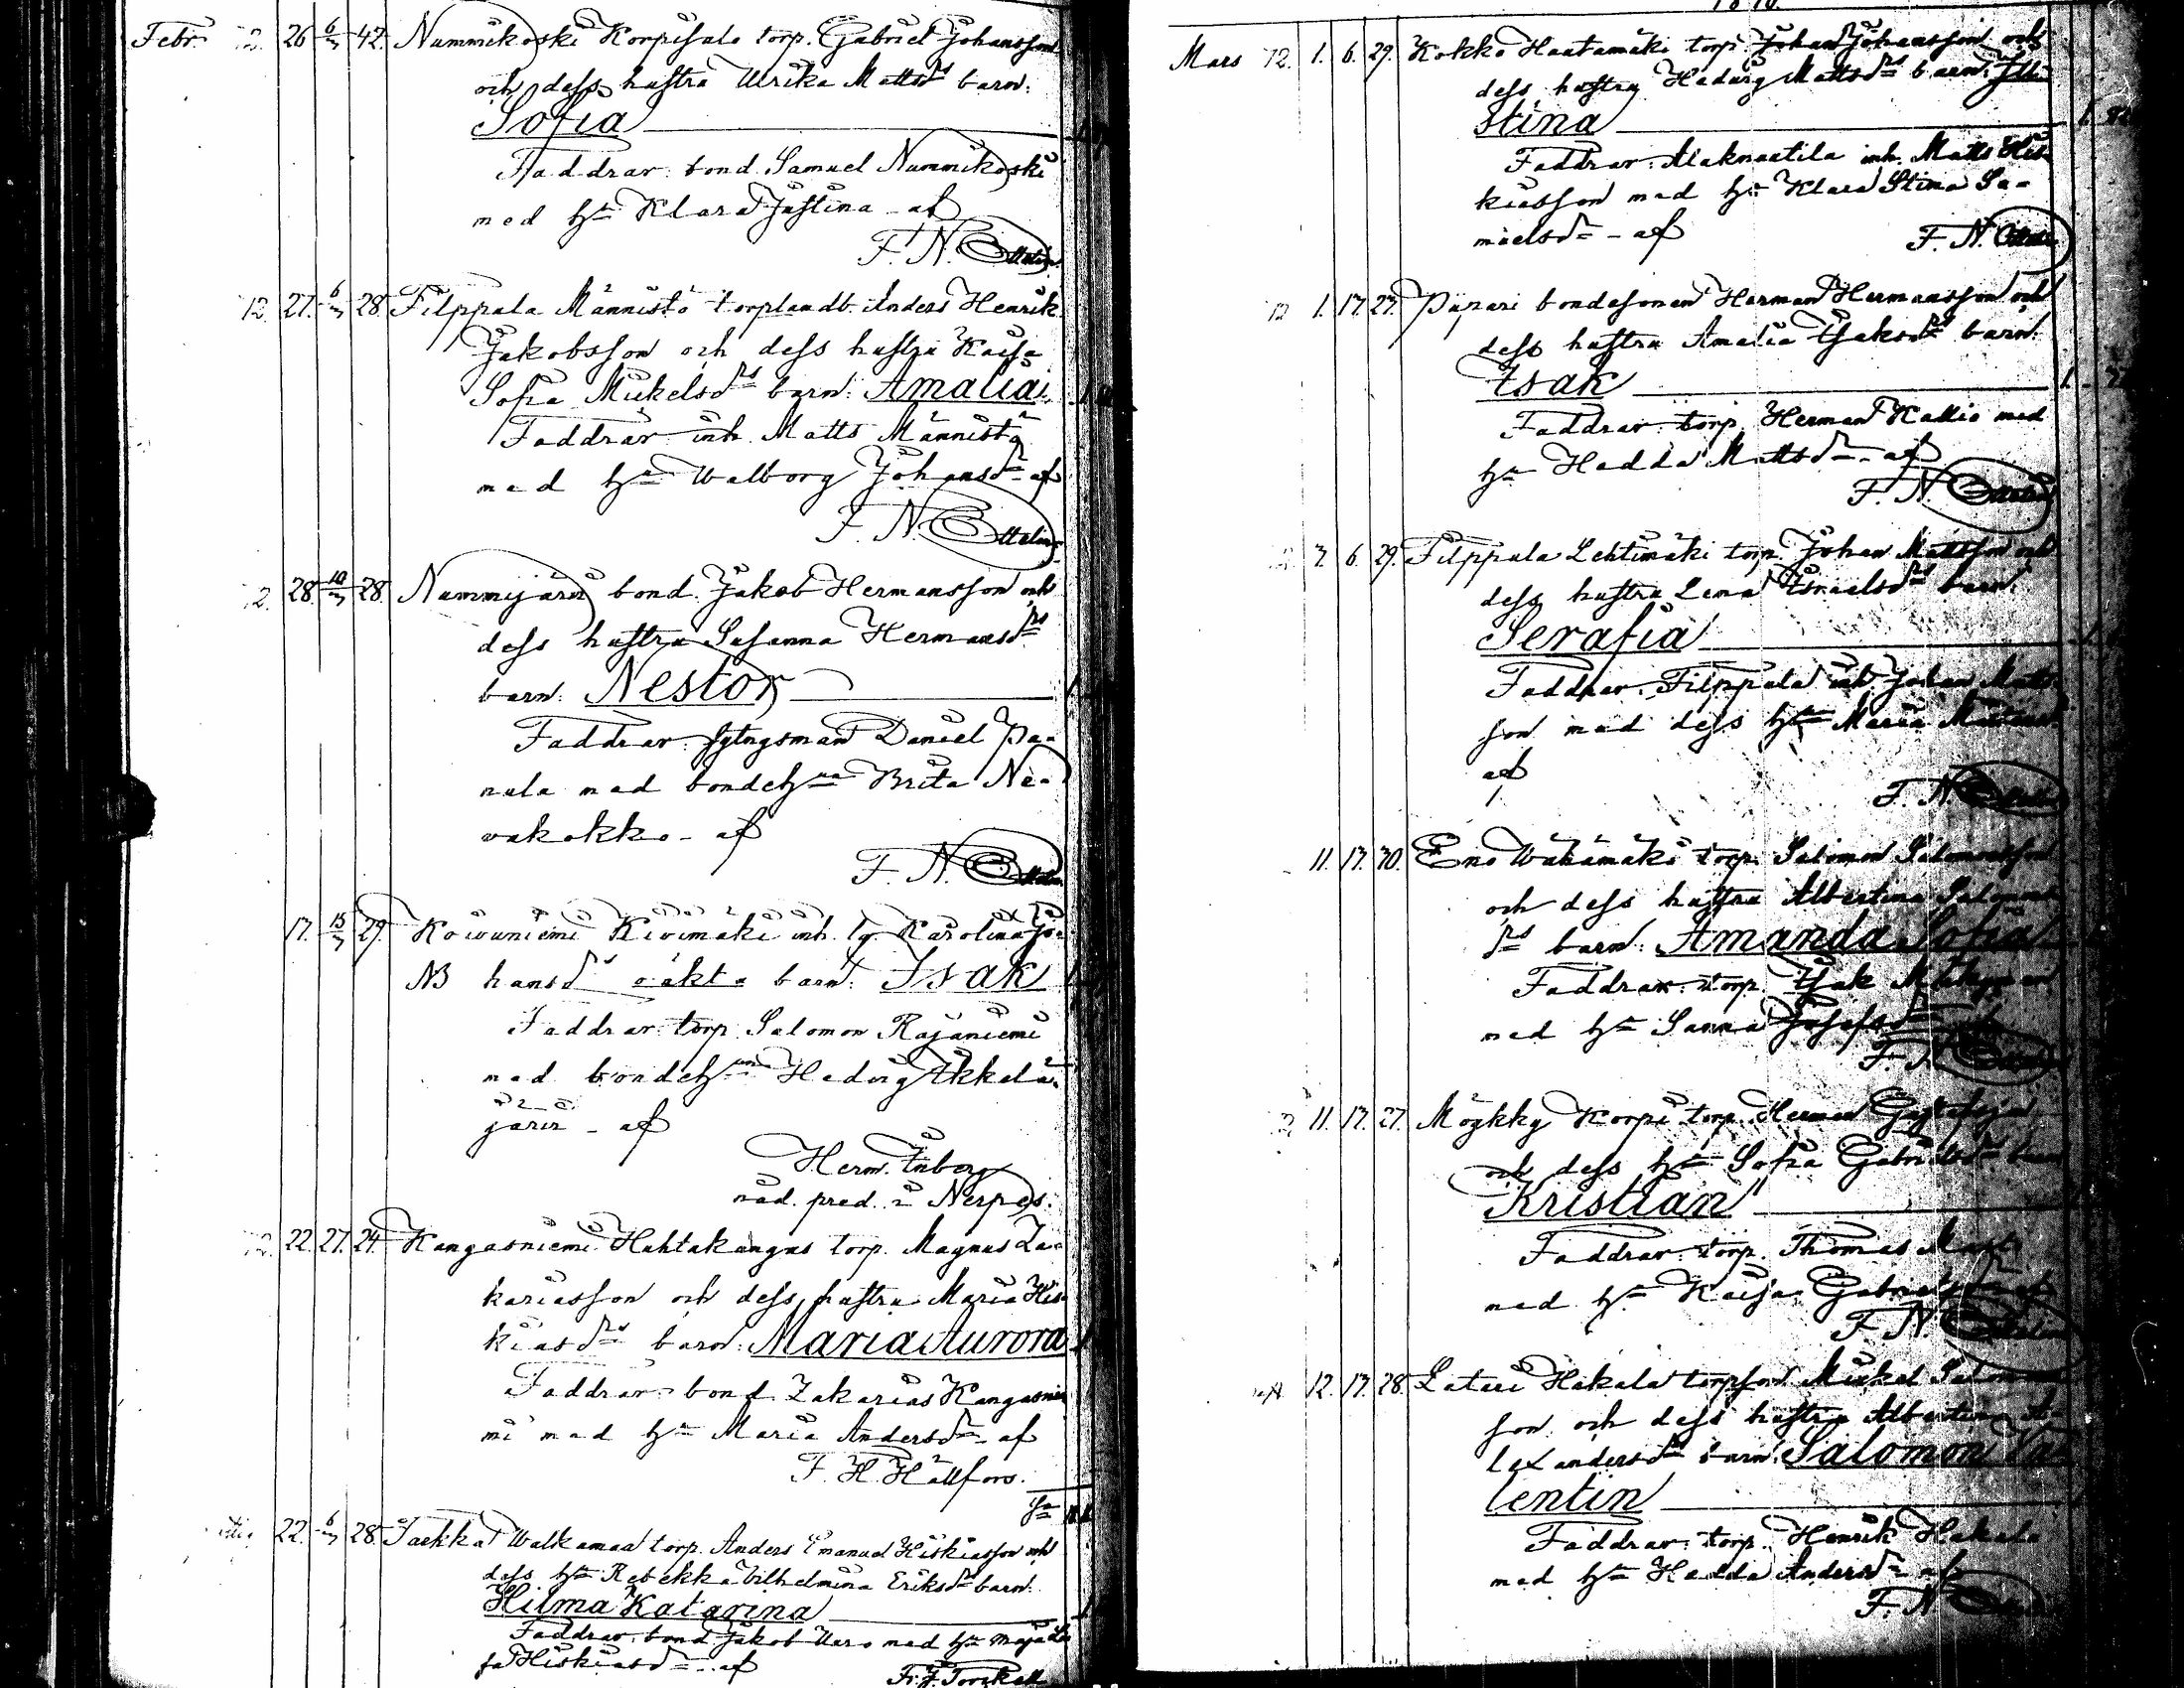 Febr. 12. 26 6/3 42. Nummikoski Korpisalo torp. Gabriel Johansson
och dess hustru Ulrika Mattsdrs barn:
Sofia
Faddrar: bond. Samuel Nummikoski
med hn Klara Justina - af
F. N.
12. 27. 6/3 28. Filppula Männistö torplandb. Anders Henrik
Jakobsson och dess hustru Kaisa
Sofia Mickelsdrs barn: Amalia 1.
Faddrar: inh. Matts Männistö
med hu Walborg Johansdr af
F. N.
28. 10/3 28. Nummijärvi bond. Jakob Hermansson och
dess hustru Susanna Hermansdrs
barn: Nestor 1.
Faddrar: Daniel Pa-
nula med bondehun Brita Ne-
vakokko - af
F. N.
17. 15/3 29. Koivuniemi Kivimäki inh. Karolina Jo-
NB hansdrs oäkta barn: Isak 1.
Faddrar: torp. Salomon Rajaniemi
med bondehun Hedvig Ikkelä-
järvi - af
Herm. Inberg
nåd. pred. i Nerpes.
22. 27. 24. Kangasniemi Huhtakangas torp. Magnus Za-
kariasson och dess hustru Maria His-
kiasdrs barn: Maria Aurora 1.
Faddrar: bond Zakarias Kangasnie
mi med hu Maria Andersdr - af
F. H. Hällfors.
22. 6/3 28. Walkamaa torp. Anders Emanuel Hiskiasson och
dess hu Rebekka Vilhelmina Eriksdrs barn:
Hilma Katarina 1.
Faddrar: bond Jakob med hu Maja
sa Hiskiasdr - af
Mars 12. 1. 6. 29. Kokko Haatamäki torp. Johan Johansson och
dess hustru Hedvig Mattsdrs barn:
Stina 1.
Faddrar: Alaknuutila inh. Matts His-
kiasson med hu Klara Stina Sa-
muelsdr - af
F. N.
12 1. 17. 27. Pispari bondesonen Herman Hermansson och
dess hustru Amalia Isaksdrs barn:
Isak 1.
Faddrar: torp. Herman Kallio med
hu Hedda Mattsdr - af
F. N.
7. 6. 29. Filppula Lehtimäki torp. Johan Mattsson och
dess hustru Lena Israelsdrs barn:
Serafia
Faddrar: Filppula inh. Johan Matts-
son med dess hu Maria
af
F. N.
11. 17. 30. Wahämäki torp. Salomon Salomonsson
och dess hustru Albertina Salomons
drs barn: Amanda Sofia
Faddrar: torp. Isak
med hu Sanna Josefsdr
F. N.
11. 17. 27. Möykky Korpi torp. Herman
och dess hu Sofia Gabrielsdrs barn
Kristian
Faddrar: torp. Thomas
med hu Kaisa Gabrielsdr af
F. N.
12. 17. 28. Hakala torpson Mickel Salomons
son och dess hustru Albertina A-
lexandersdrs barn: Salomon Va-
lentin
Faddrar: torp. Henrik Hakala
med hu Hedda Andersdr - af
F. N.